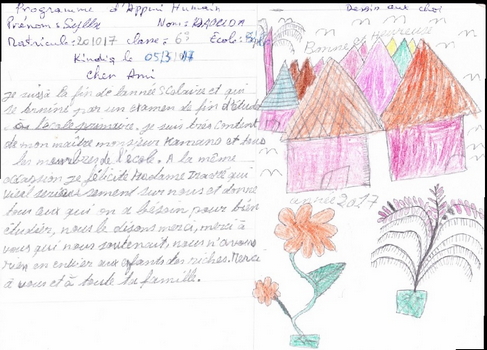 Programme d'Appui Humain
Dessin au choi
Prénom: Sylla Nom:
Matricule: 201017 classe: 6è École:
Kindia le 05/3/17
Cher Ami
Je suis à la fin de l'année scolaire et qui
se termine par un examen de fin d'étude
l'école primaire. je suis très content
de mon maître monsieur Kamano et tous
les membres de l'école. A la même
occasion je félicite Madame Traoré qui
sur nous et donne
tous ceux qui on a besoin pour bien
étudier, nous le disons merci, merci à
vous qui nous soutenait, nous n'avons
rien en envier aux enfants des riches. Merci
à vous et à toute ta famille.
Bonne et Heureuse
année 2017